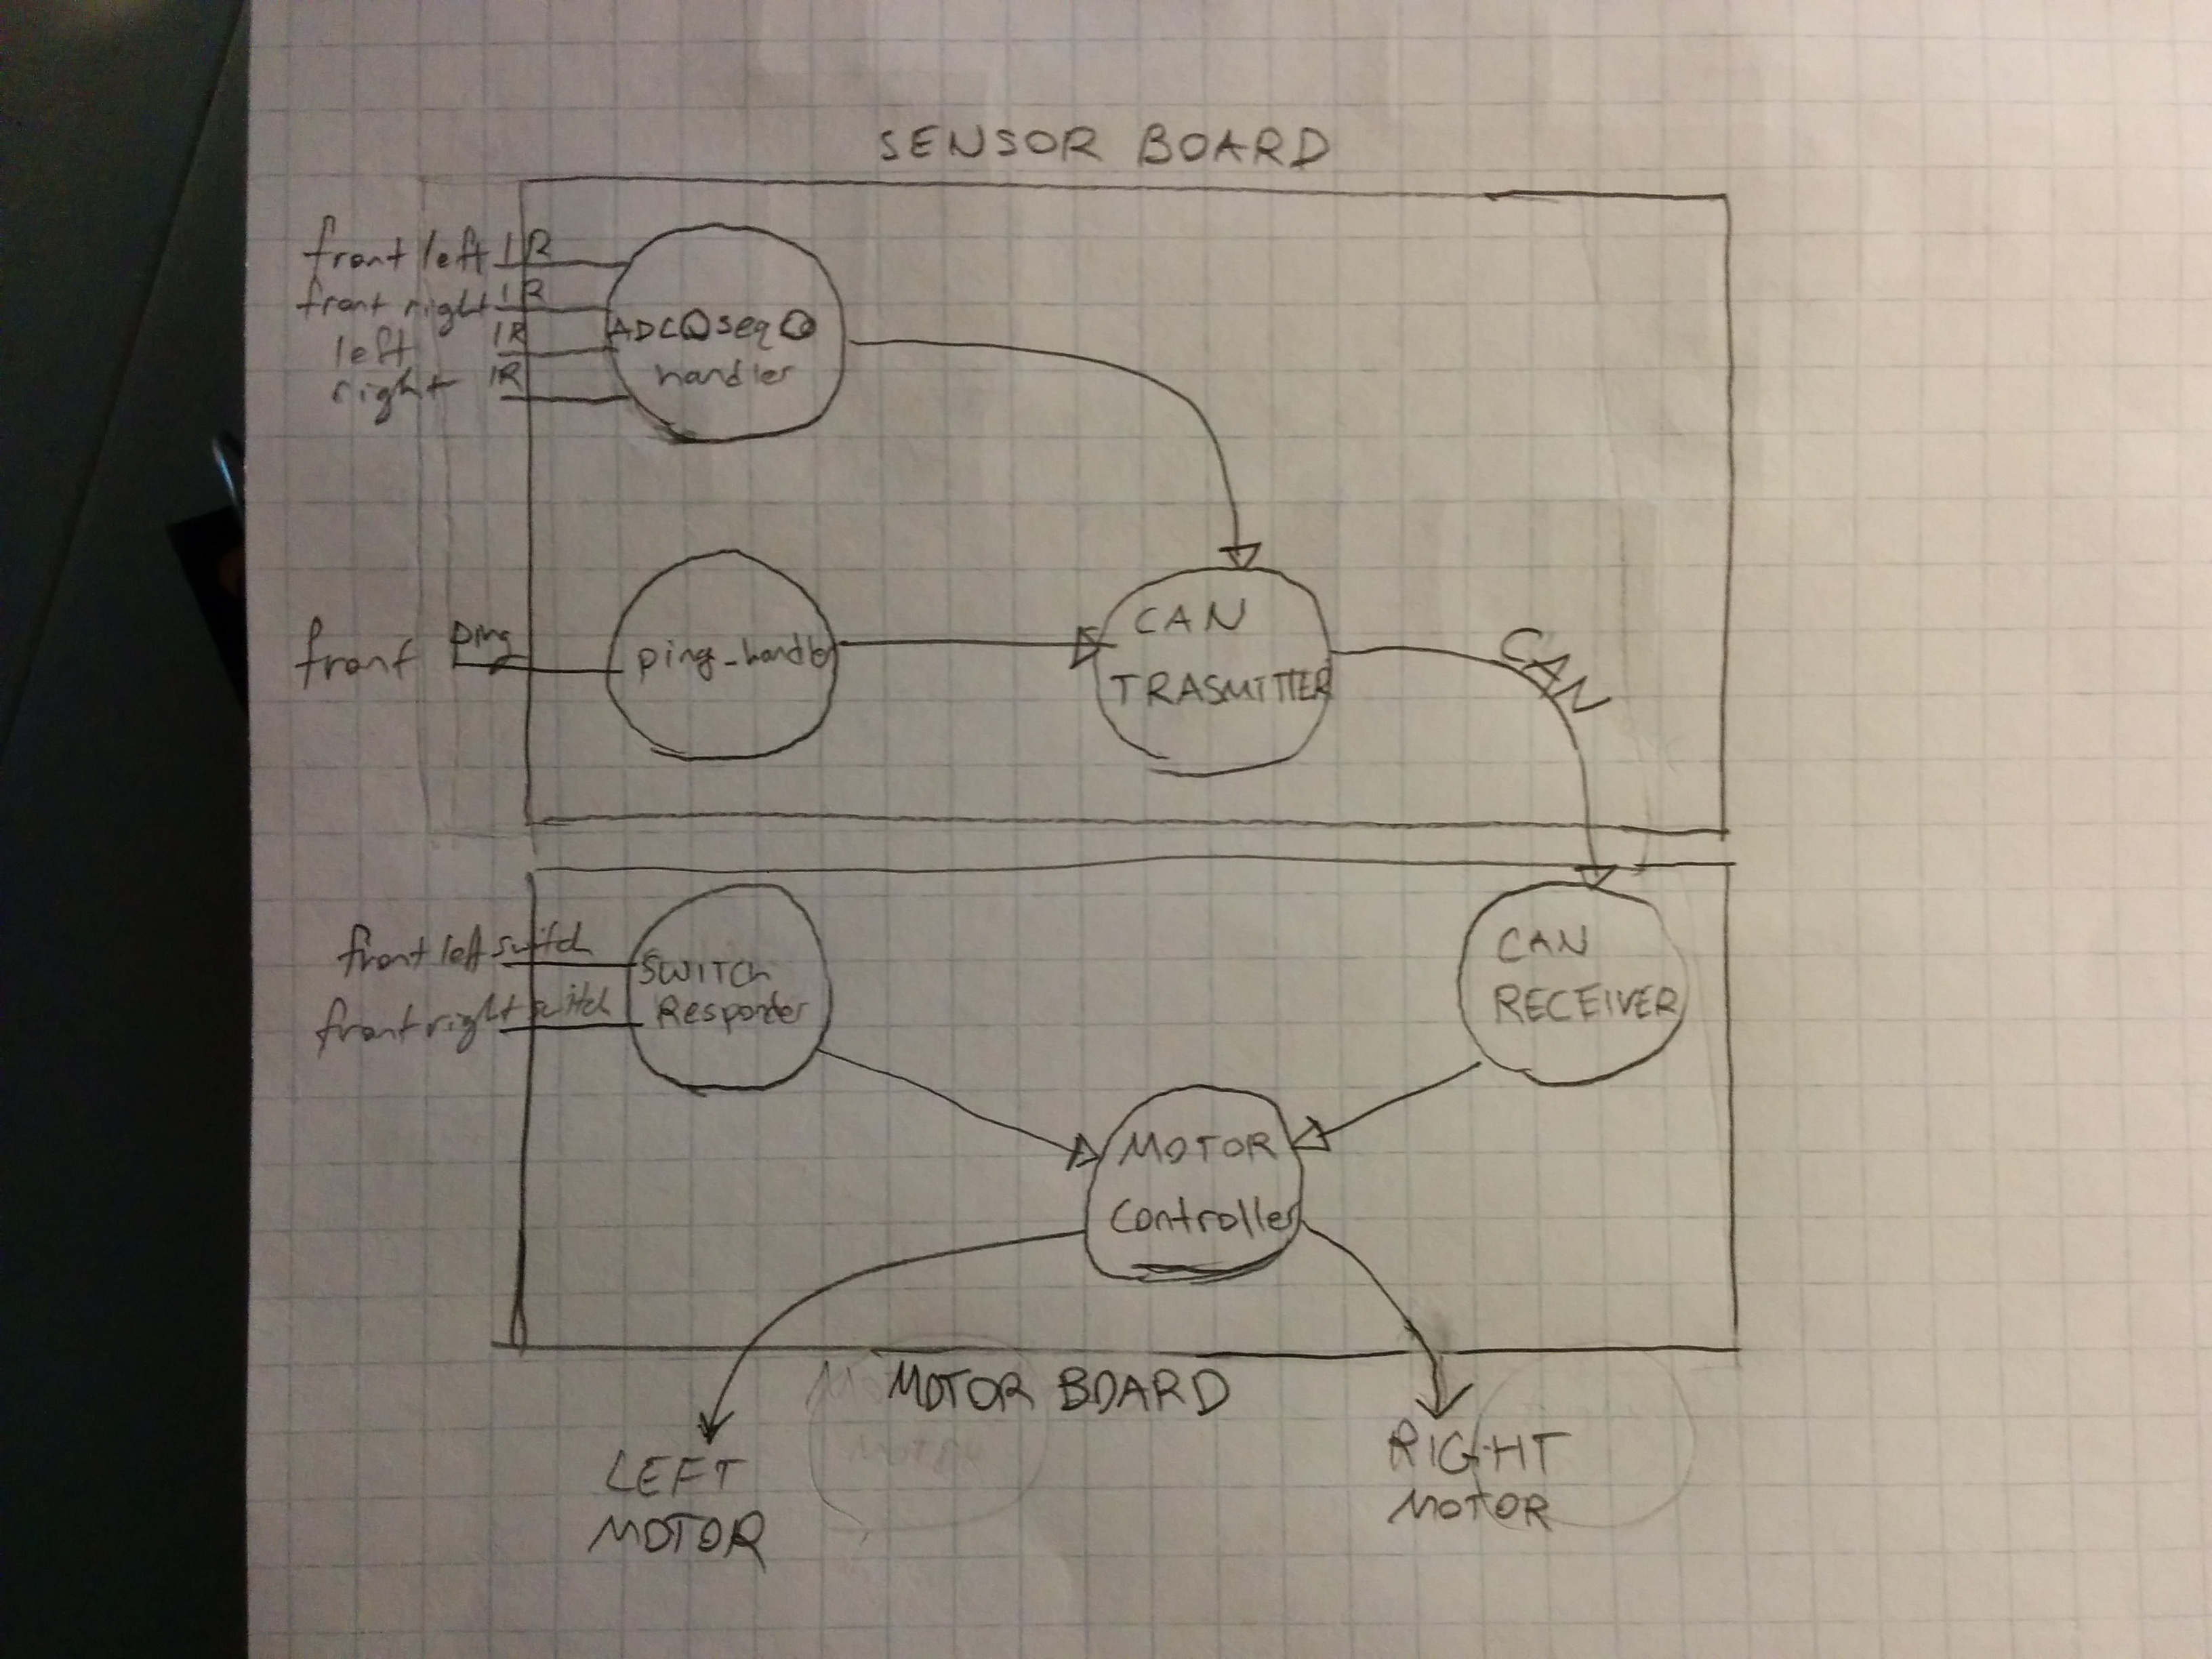 SENSOR BOARD
front left IR
front right IR
left IR
right IR
ADC0seq0
handler
front ping
ping_handler
CAN
TRASMITTER
CAN
front left switch
front right switch
SWITCH
Responder
CAN
RECEIVER
MOTOR
Controller
MOTOR BOARD
LEFT
MOTOR
RIGHT
MOTOR